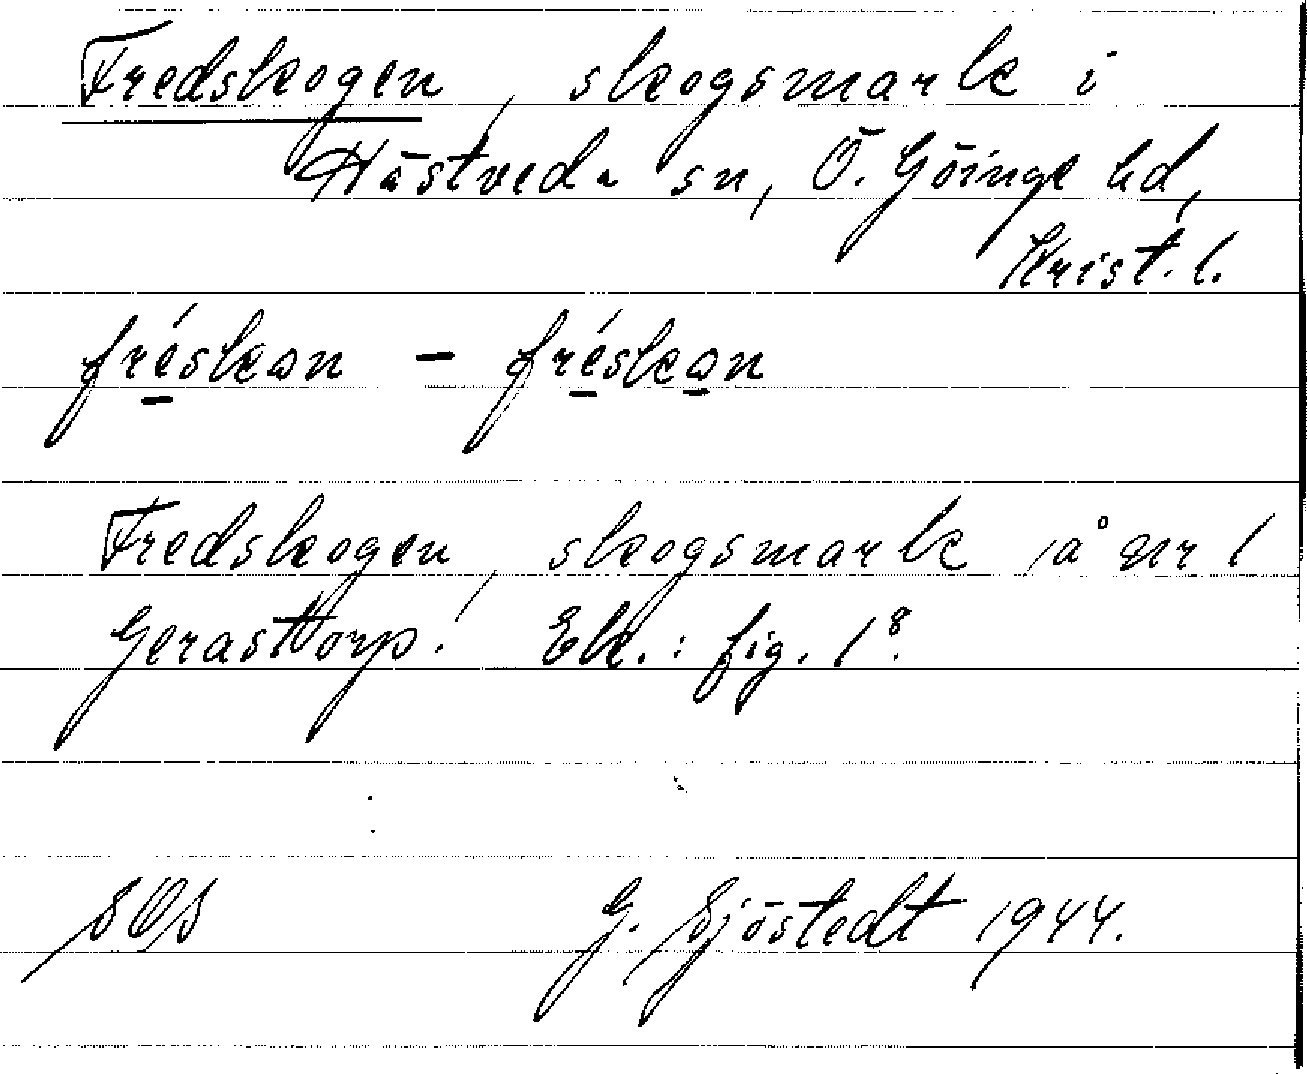 Fredskogen, skogsmark i
Hästveda sn, Ö. Göinge hd,
Krist. l.
fréskan – fréskan
Fredskogen, skogsmark å nr 1
Gerastorp! Ek.: fig. 1⁸.
G. Sjöstedt 1944.